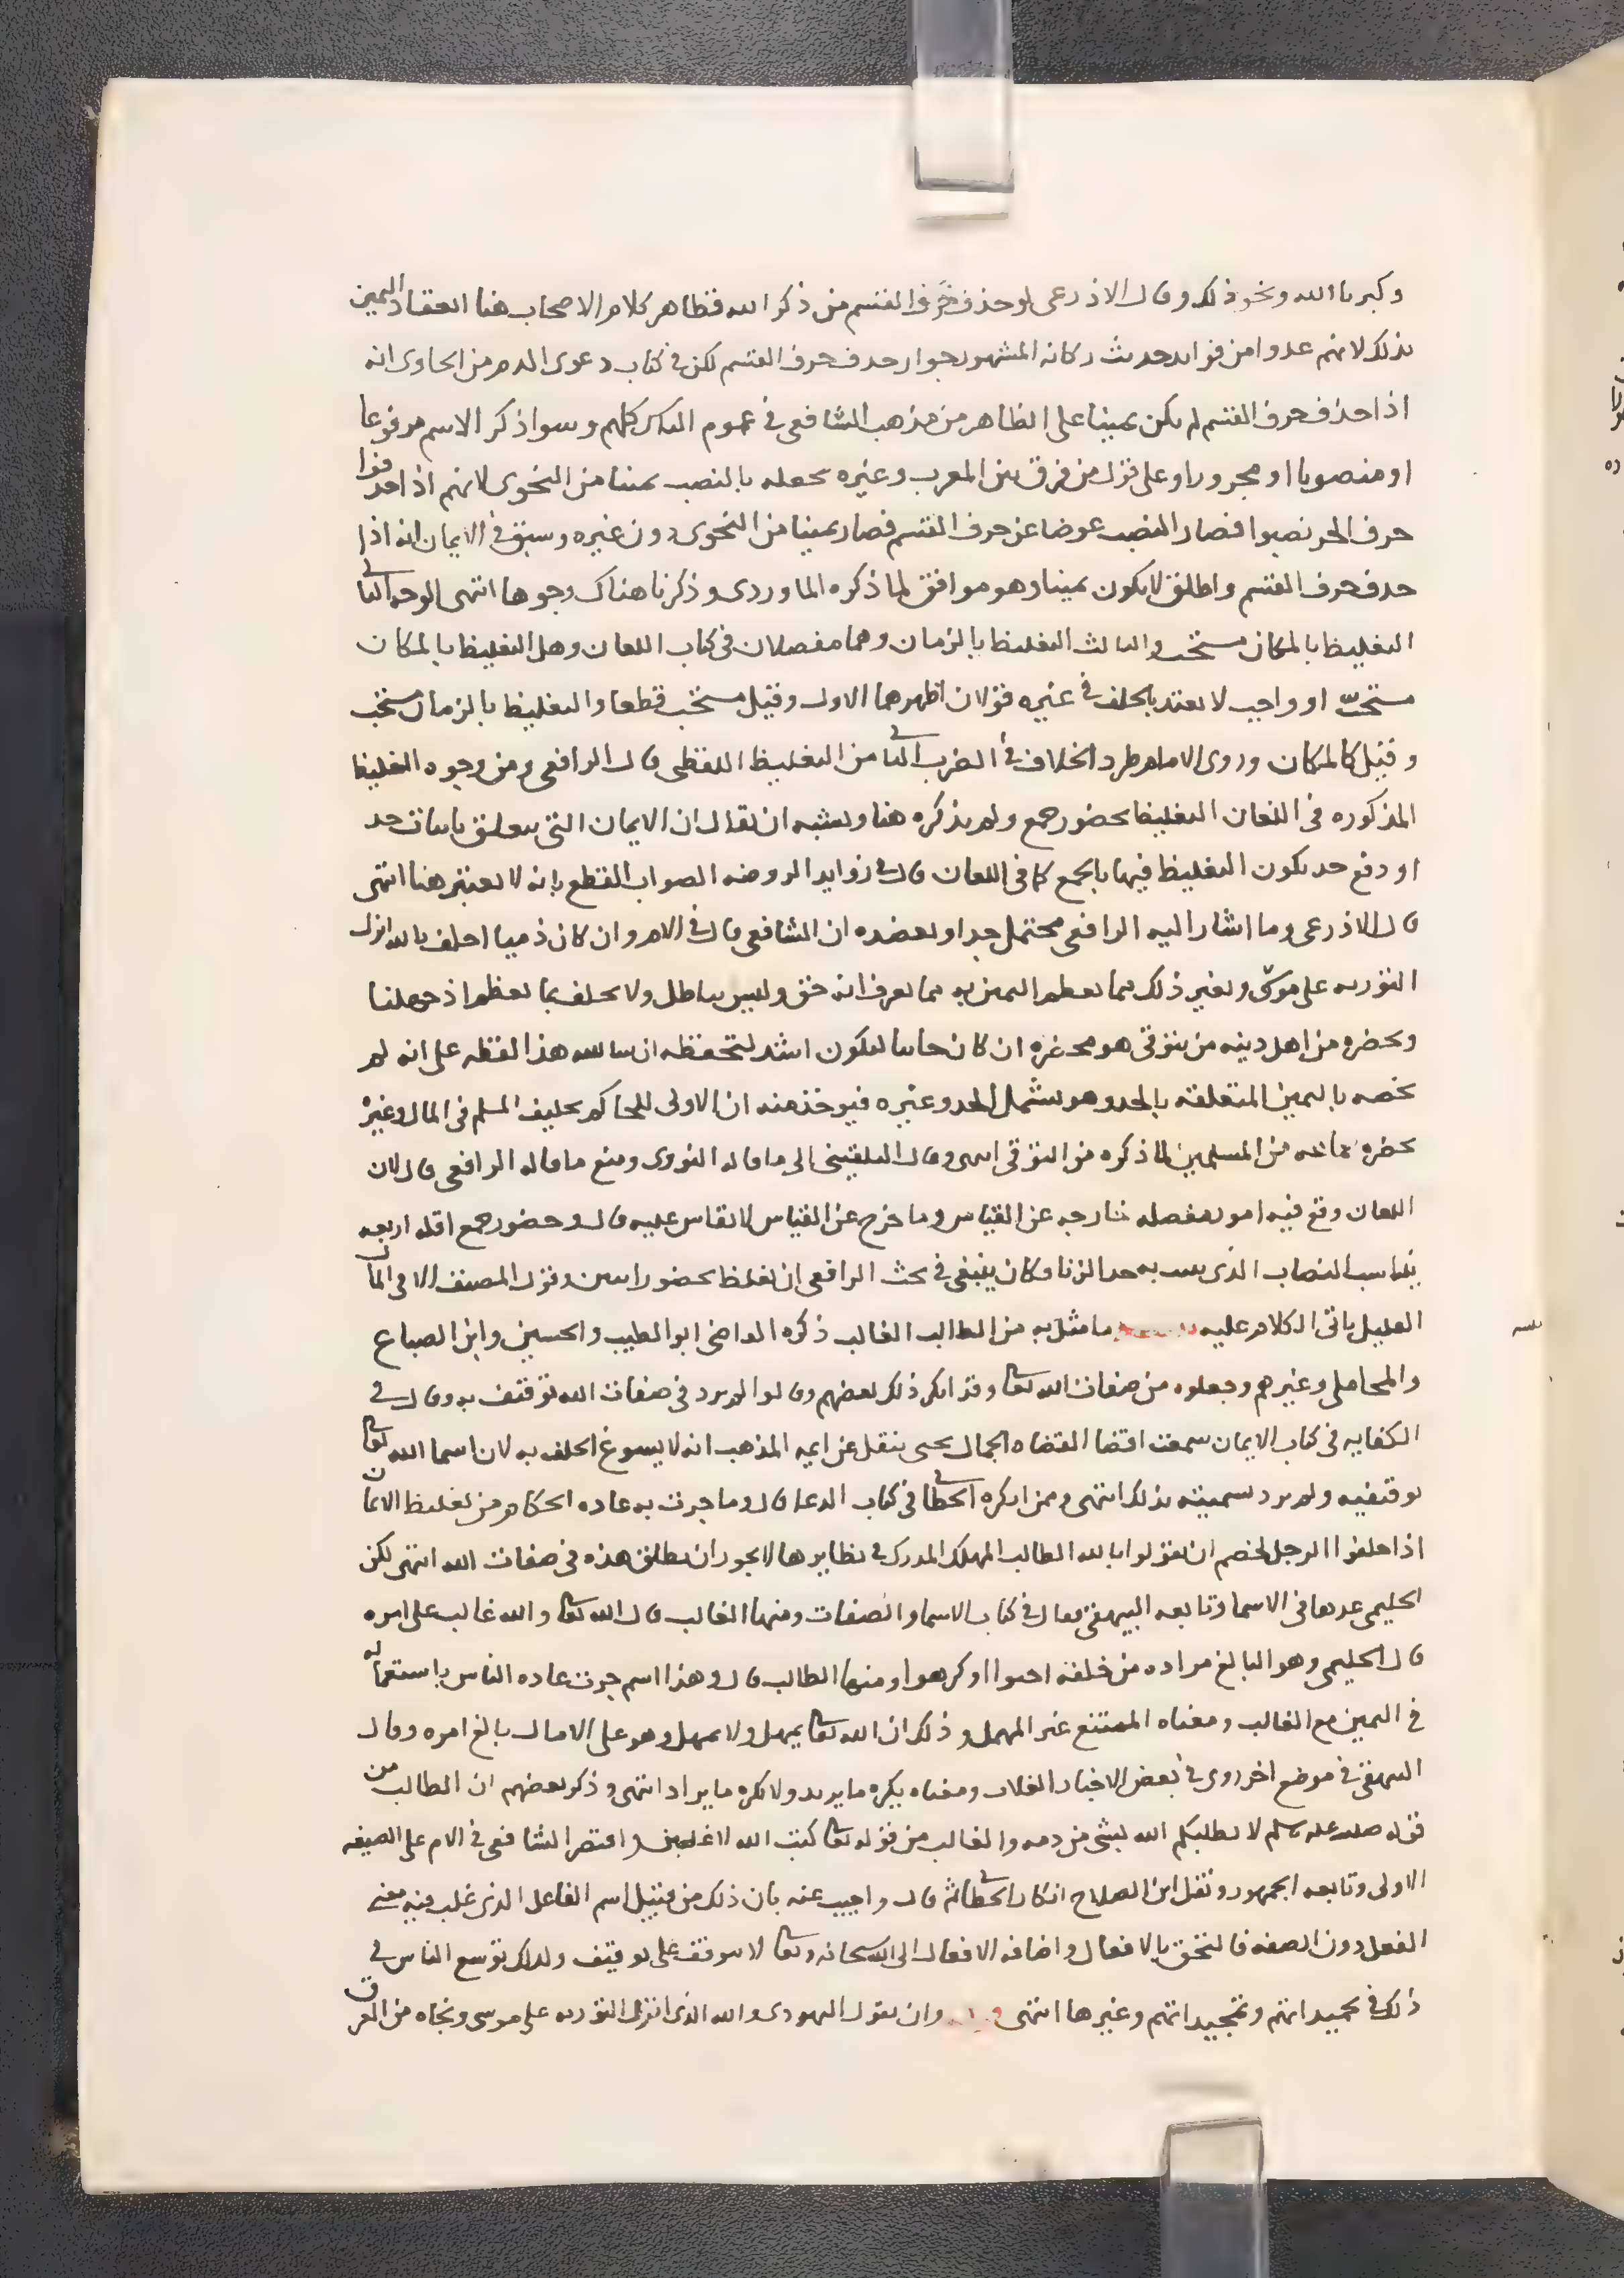 وكبرياالله ونحو ذلك وقال الاذرعي لوحذف حرف القسم من ذكر الله فظاهر كلام الاصحاب هنا انعقاد اليمين
بذلك لانهم عدوا من فوايد حديث ركانه المشهور جواز حذف حرف القسم لكن في كتاب دعوى الدم من الحاوى انه
اذا حذف حرف القسم لم يكن يمينا على الظاهر من مذهب الشافعي في عموم الناس كلهم وسوا ذكر الاسم مرفوعا
او منصوبا او مجرورا وعلى قول من فرق بين المعرب وغيره يجعله بالنصب يمينا من النحوى لانهم اذا حذفوا
حرف الجر نصبوا فصار النصب عوضا عن حرف القسم فصار يمينا من النحوى دون غيره وسبق في الايمان انه اذا
حذف حرف القسم واطلق لا يكون يمينا وهو موافق لما ذكره الماوردى وذكرنا هناك وجوها انتهى الوجه الثاني
التغليظ بالمكان مستحب والثالث التغليظ بالزمان وهما مفصلان في كتاب اللعان وهل التغليظ بالمكان
مستحبّ او واجب لا يعتد بالحلف في غيره قولان اظهرهما الاول وقيل مستحب قطعا والتغليظ بالزمان مستحب
وقيل كالمكان وروى الامام طرد الخلاف في الضرب الثاني من التغليظ اللفظى قال الرافعي ومن وجوه التغليظ
المذكوره في اللعان التغليظ بحضور جمع ولم يذكره هنا ويشبه ان يقال ان الايمان التي يتعلق باثبات حد
او دفع حد يكون التغليظ فيها بالجمع كما في اللعان قال في زوايد الروضه الصواب القطع بانه لا يعتبر هنا انتهى
قال الاذرعي وما اشار اليه الرافعي محتمل جدا ويعضده ان الشافعي قال في الام وان كان ذميا احلف بالله انزل
التوريه على موسى وبغير ذلك مما يعظم اليمين به مما يعرف انه حق وليس بباطل ولا يحلف بما يعظم اذ جهلنا
ويحضره من اهل دينه من يتوقى هو محضره ان كان حانثا ليكون اشد لتحفظه ان شا الله هذا لفظه على انه لم
يخصه باليمين المتعلقه بالحد وهو يشمل الحد وغيره فيوخذ منه ان الاولى للحاكم تحليف المسلم في المال وغيره
بحضره جماعه من المسلمين لما ذكره من التوقى انتهى وقال البلقيني الى ما قاله النووى ومنع ما قاله الرافعي قال لان
اللعان وقع فيه امور مفصله خارجه عن القياس وما خرج عن القياس لا يقاس عليه قال وحضور جمع اقله اربعه
يناسب النصاب الذى يثبت به حد الزنا وكان ينبغي في بحث الرافعي ان يغلظ بحضور اثنين وقول المصنف الا في المال
القليل ياتي الكلام عليه ما مثل به من الطالب الغالب ذكره القاضي ابو الطيب والحسين وابن الصباع
والمحاملي وغيرهم وجعلوه من صفات الله تعالى وقد انكر ذلك بعضهم وقالوا لم يرد في صفات الله توقيف به وقال في
الكفايه في كتاب الايمان سمعت اقضا القضاه الجمال يحيى ينقل عن ايمه المذهب انه لا يسوغ الحلف به لان اسما الله تعالى
توقيفيه ولم يرد تسميته بذلك انتهى وممن انكره الخطابي في كتاب الدعا قال وما جرت به عاده الحكام من تغليظ الايمان
اذا حلفوا الرجل لخصم ان يقولوا بالله الطالب المهلك المدرك في نظايرها لا يجوز ان يطلق هذه في صفات الله انتهى لكن
الحليمي عدها في الاسما وتابعه البيهقي فقال في كتاب الاسما والصفات ومنها الغالب قال الله تعالى والله غالب على امره
قال الحليمي وهو البالغ مراده من خلقه احبوا او كرهوا ومنها الطالب قال وهذا اسم جرت عاده الناس باستعماله
في اليمين مع الغالب ومعناه الممتنع غير المهمل وذلك ان الله تعالى يمهل ولا يهمل وهو على الامال بالغ امره وقال
البيهقي في موضع اخر روى في بعض الاخبار الغلاب ومعناه يكره ما يريد ولا يكره ما يراد انتهى وذكر بعضهم ان الطالب من
قوله صلى الله عليه وسلم لا يطلبكم الله بشي من ذمه والغالب من قوله تعالى كتب الله لاغلبن واقتصر الشافعي في الام على الصيغه
الاولى وتابعه الجمهور ونقل ابن الصلاح انكار الخطابي ثم قال واجيب عنه بان ذلك من قبيل اسم الفاعل الذى غلب فيه معنى
الفعل دون الصفه فالتحق بالافعال واضافه الافعال الى الله سبحانه وتعالى لا يتوقف على توقيف ولذلك توسع الناس في
ذلك في تحميداتهم وتمجيداتهم وغيرها انتهى وان يقول اليهودى والله الذى انزل التوريه على موسى ونجاه من الغرق